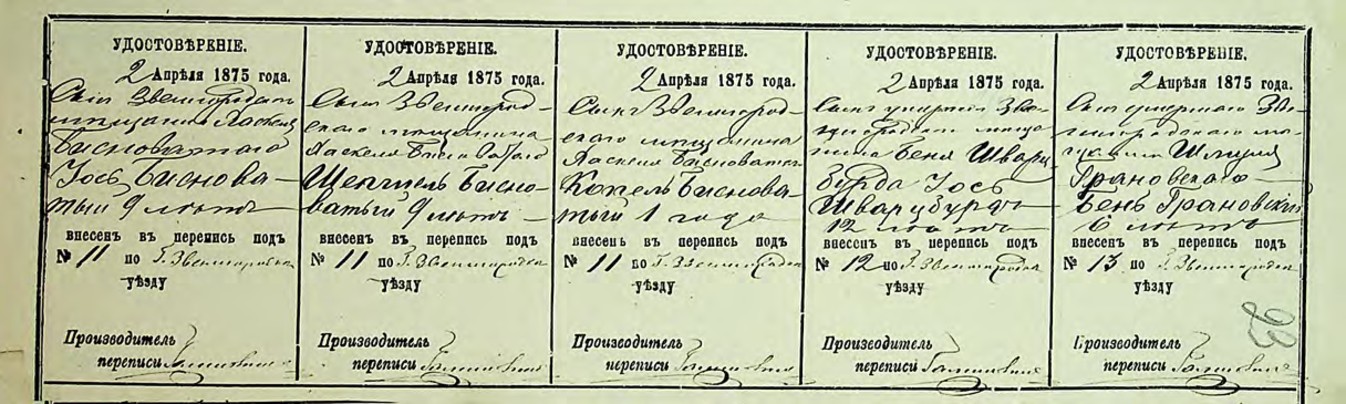 УДОСТОВѢРЕНІЕ.
2 Апрѣля 1875 года.
Сынъ Звенигородск
мѣщанина Хаскеля
Бисноватаго
Іось Биснова-
тый 9 лѣтъ
внесенъ въ перепись подъ
№ 11 по Г. Звенигородка
уѣзду
Производитель
переписи
УДОСТОВѢРЕНІЕ.
2 Апрѣля 1875 года.
Сынъ Звенигород-
скаго мѣщанина
Хаскеля Бисноватаго
Шепшель Бисно-
ватый 9 лѣтъ
внесенъ въ перепись подъ
№ 11 по Г. Звенигородка
уѣзду
Производитель
переписи
УДОСТОВѢРЕНІЕ.
2 Апрѣля 1875 года.
Сынъ Звенигород-
скаго мѣщанина
Хаскеля Бисноватаго
Копель Биснова-
тый 1 года
внесенъ въ перепись подъ
№ 11 по Г. Звенигородка
уѣзду
Производитель
переписи
УДОСТОВѢРЕНІЕ.
2 Апрѣля 1875 года.
Сынъ умершаго Зве-
нигородск мѣща-
нина Беня Шварц
бурда Іось
Шварцбурдъ
12 лѣтъ
внесенъ въ перепись подъ
№ 12 по Г. Звенигородка
уѣзду
Производитель
переписи
УДОСТОВѢРЕНІЕ.
2 Апрѣля 1875 года.
Сынъ умершаго Зве-
нигородскаго мѣ-
щанина Шмуля
Грановскаго
Бень Грановскій
6 лѣтъ
внесенъ въ перепись подъ
№ 13 по Г. Звенигородка
уѣзду
Производитель
переписи